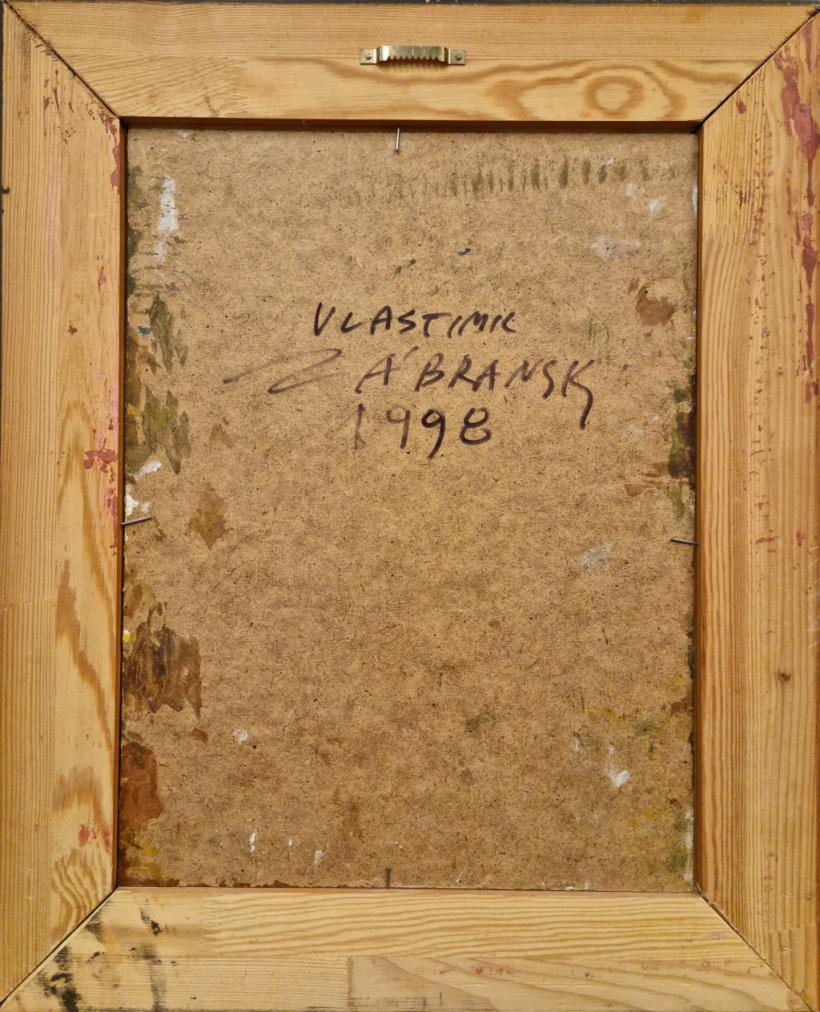 VLASTIMIL
ZÁBRANSKÝ
1998